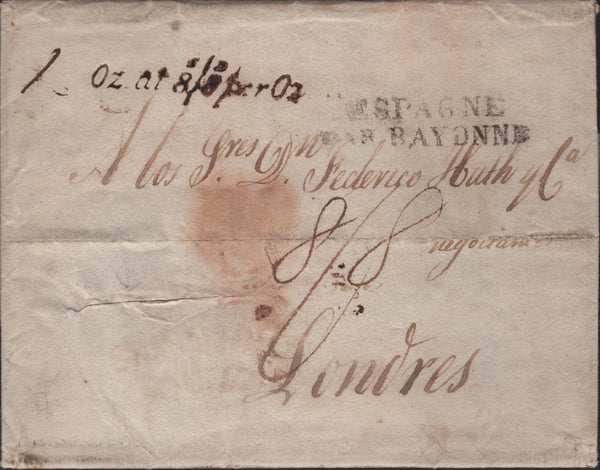 1 Oz. at 8/8 per Oz
ESPAGNE
PAR BAYONNE
A los Sres Dn. Federico Huth y Ca
negociantes
8/8
Londres